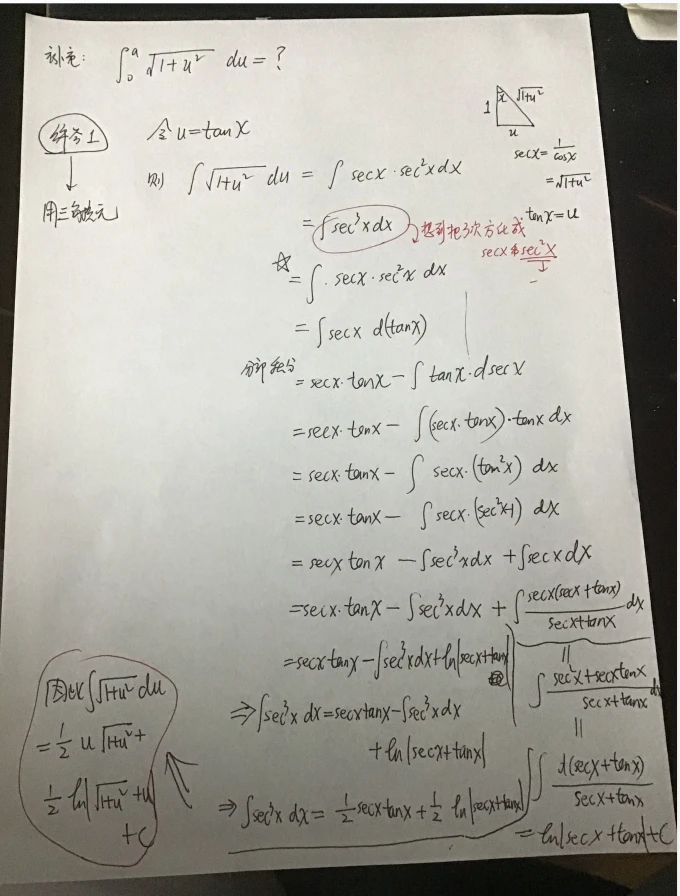 补充: ∫₀ᵃ √(1+u²) du = ?
1 x √(1+u²) u
答案1
令 u=tanx
secx = 1/cosx
= √(1+u²)
tanx = u
↓
用三角换元
则 ∫ √(1+u²) du = ∫ secx · sec²x dx
= ∫ sec³x dx
想到把3次方化成
secx 和 sec²x
☆ = ∫ · secx · sec²x dx
= ∫ secx d(tanx)
分部积分 = secx · tanx − ∫ tanx · dsecx
= secx · tanx − ∫ (secx · tanx) · tanx dx
= secx · tanx − ∫ secx · (tan²x) dx
= secx · tanx − ∫ secx · (sec²x-1) dx
= secx tanx − ∫ sec³x dx + ∫ secx dx
= secx · tanx − ∫ sec³x dx + ∫ secx(secx + tanx) / (secx+tanx) dx
= secx tanx − ∫ sec³x dx + ln|secx+tanx|
||
∫ (sec²x + secx tanx) / (secx+tanx) dx
||
∫ d(secx+tanx) / (secx+tanx)
= ln|secx + tanx| + C
⇒ ∫ sec³x dx = secx tanx − ∫ sec³x dx
+ ln|secx+tanx|
⇒ ∫ sec³x dx = 1/2 secx tanx + 1/2 ln|secx+tanx|
因此 ∫ √(1+u²) du
= 1/2 u √(1+u²) +
1/2 ln|√(1+u²) + u|
+ C